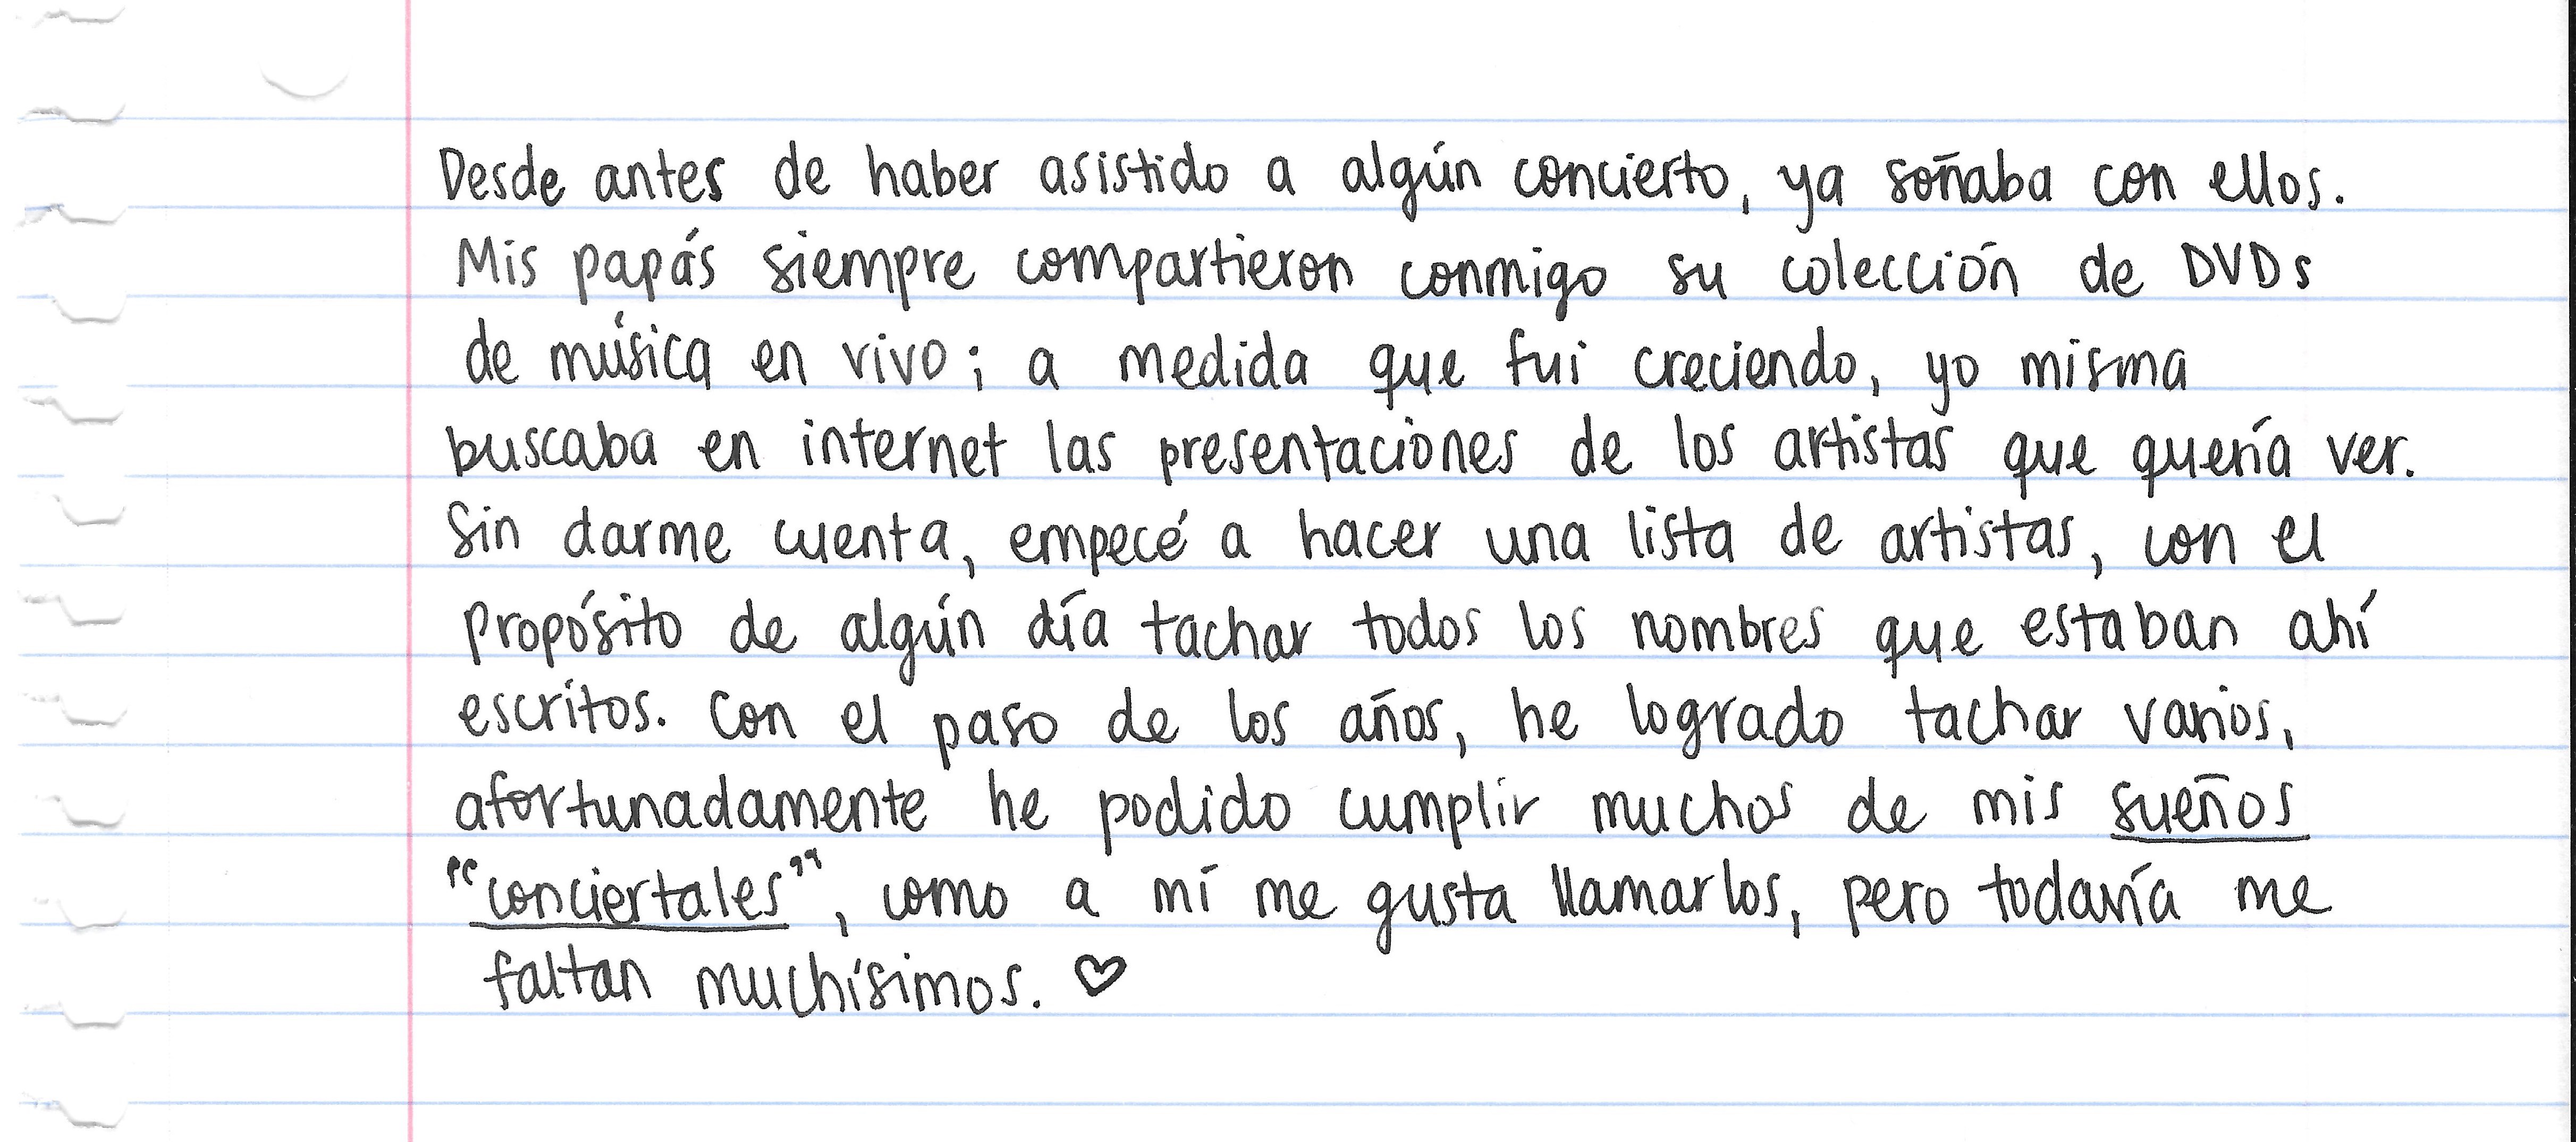 Desde antes de haber asistido a algún concierto, ya soñaba con ellos.
Mis papás siempre compartieron conmigo su colección de DVDs
de música en vivo; a medida que fui creciendo, yo misma
buscaba en internet las presentaciones de los artistas que quería ver.
Sin darme cuenta, empecé a hacer una lista de artistas, con el
propósito de algún día tachar todos los nombres que estaban ahí
escritos. Con el paso de los años, he logrado tachar varios,
afortunadamente he podido cumplir muchos de mis sueños
"conciertales", como a mí me gusta llamarlos, pero todavía me
faltan muchísimos. ♡